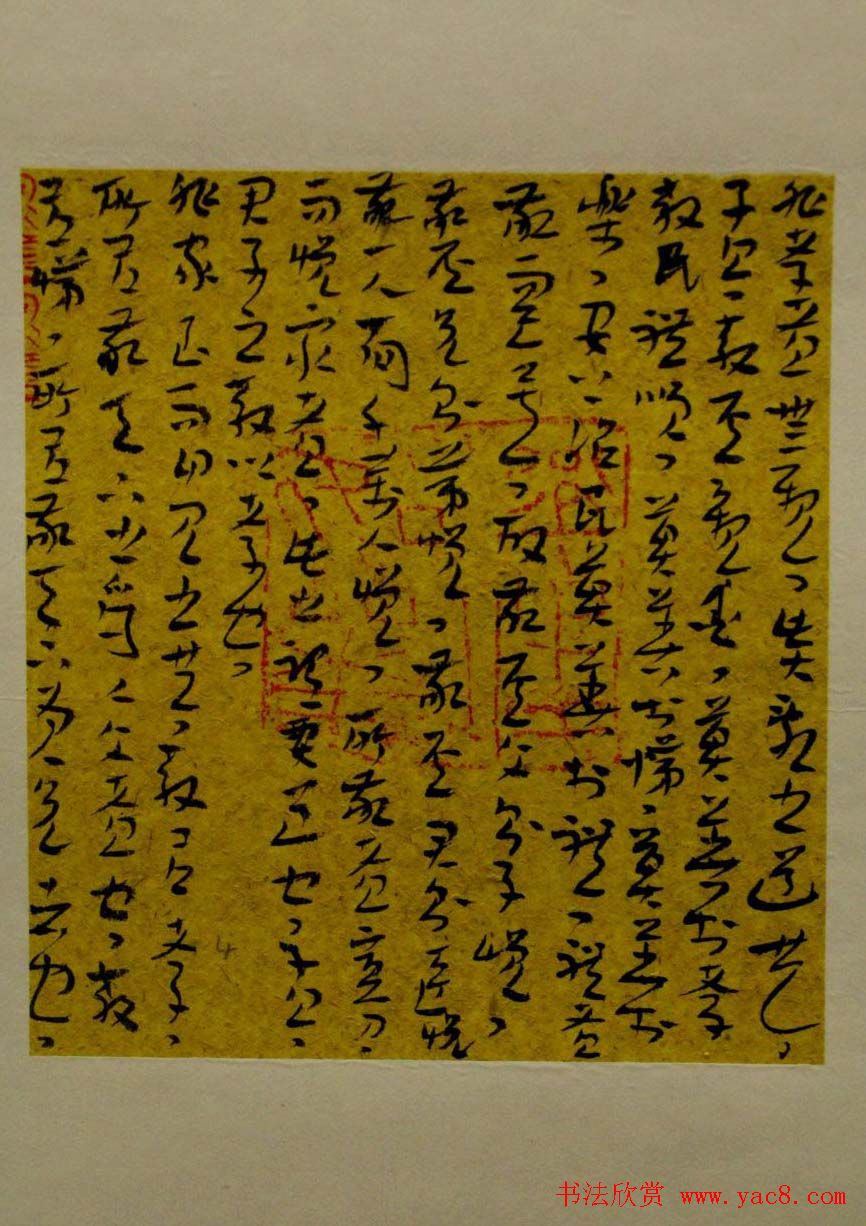 非孝者無親、此大亂之道也、
子曰、教民親愛、莫善於孝
教民禮順、莫善於悌、莫善於
樂、安上治民、莫善於禮、禮者
敬而已矣、故敬其父則子悅、
敬其兄則弟悅、敬其君則臣悅
敬一人而千萬人悅、所敬者寡、
而悅眾者、此之謂要道也、子曰、
君子之教以孝也、
非家至而日見之也、教以孝、
所以敬天下之為人父者也、教
以悌、所以敬天下為人兄者也、
4
书法欣赏 www.yac8.com